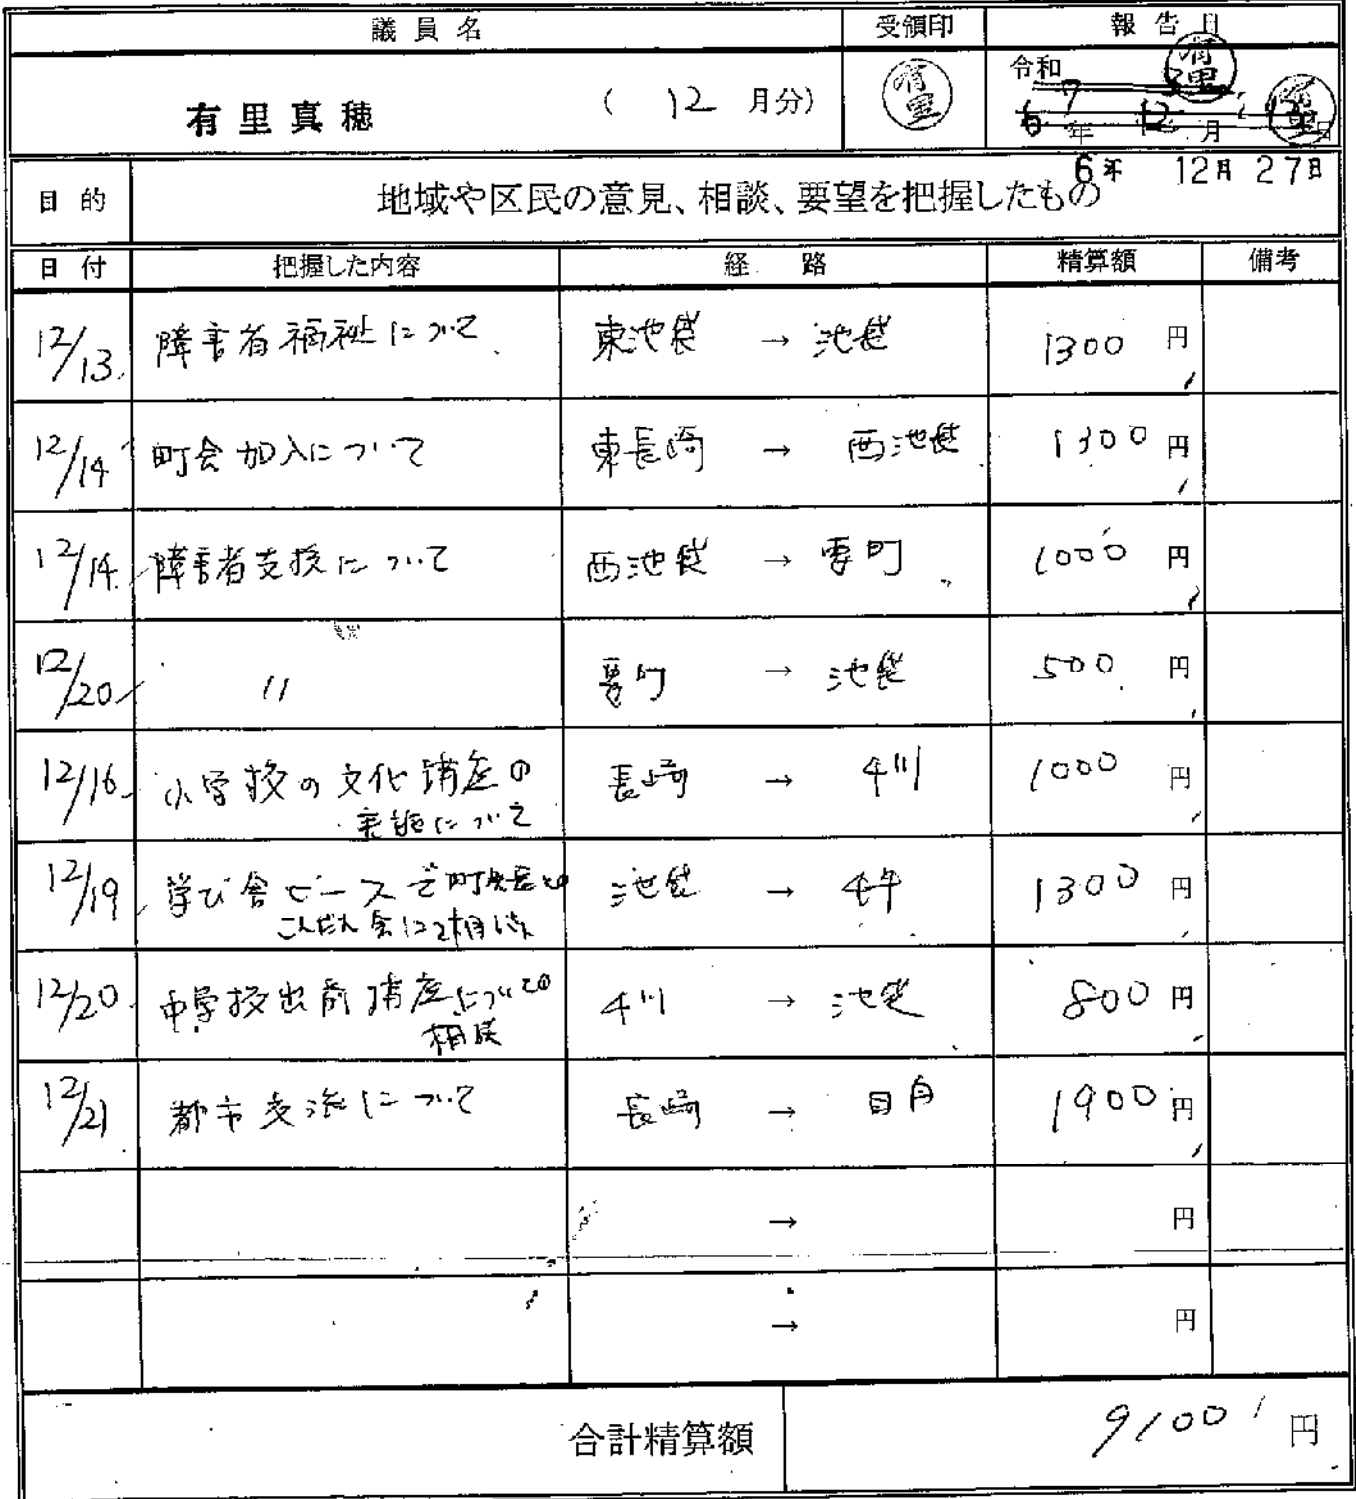 議員名 受領印 報告日
有里真穂 ( 12 月分) 有里 令和
6 7 年 12 月 日
6年 12月 27日
目的 地域や区民の意見、相談、要望を把握したもの
日付 把握した内容 経路 精算額 備考
12/13 障害者福祉について 東池袋 → 池袋 1300 円
12/14 町会加入について 東長崎 → 西池袋 1300 円
12/14 障害者支援について 西池袋 → 要町 1000 円
12/20 〃 要町 → 池袋 500 円
12/16 小学校の文化講座の 長崎 → 千川 1000 円
実施について
12/19 学び舎ピースで町会長との 池袋 → 1300 円
こんだん会にて相談
12/20 中学校出前講座についての 千川 → 池袋 800 円
相談
12/21 都市交流について 長崎 → 目白 1900 円
→ 円
→ 円
合計精算額 9100 円